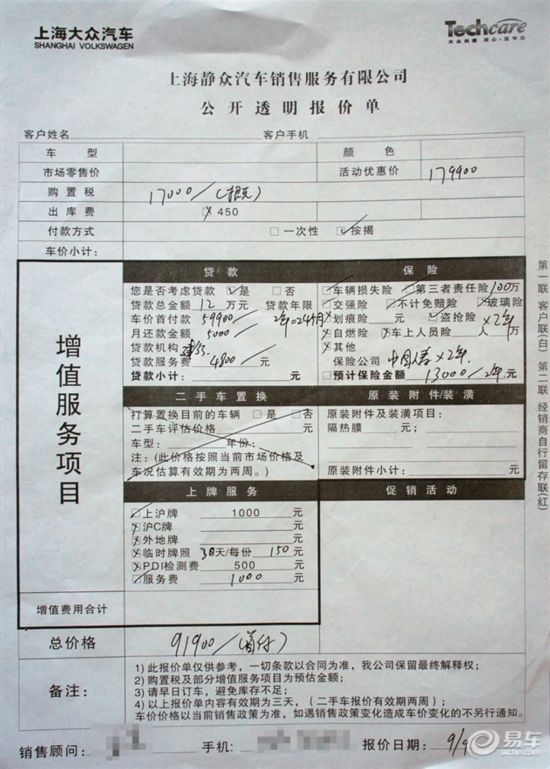 上海大众汽车
SHANGHAI VOLKSWAGEN
Techcare
大众关爱 用心·显于心
上海静众汽车销售服务有限公司
公开透明报价单
客户姓名 客户手机
车型 颜色
市场零售价 活动优惠价 179900
购置税 17000/
出库费 450
付款方式 □一次性 □按揭
车价小计:
增值服务项目
贷款
您是否考虑贷款 □是 □否
贷款总金额 12 万元 贷款年限
车价首付款 59900 2年=24个月
月还款金额 5000 元
贷款机构 建行
贷款服务费 4800 元
贷款小计: 元
保险
□车辆损失险 □第三者责任险100万
□交强险 □不计免赔险 □玻璃险
□划痕险 元 □盗抢险 ×2年
□自燃险 □车上人员险 人 万
□其他
保险公司 中国人寿×2年
□预计保险金额 13000/2年 元
二手车置换
打算置换目前的车辆 □是 □否
二手车评估价格 元
车型: 年份:
注:(此价格按照当前市场价格及
车况估算有效期为两周。)
原装附件/装潢
原装附件及装潢项目:
隔热膜 元
原装附件小计: 元
上牌服务
□上沪牌 1000 元
□沪C牌 元
□外地牌 元
□临时牌照 30天/每份 150 元
□PDI检测费 500 元
□服务费 1000 元
促销活动
增值费用合计
总价格 91900/(首付)
备注:
1) 此报价单仅供参考,一切条款以合同为准,我公司保留最终解释权;
2) 购置税及部分增值服务项目为预估金额;
3) 请早日订车,避免库存不足;
4) 以上报价单内容有效为三天,(二手车报价有效期两周);
车价价格以当前销售政策为准,如遇销售政策变化造成车价变化的不另行通知。
销售顾问: 手机: 报价日期: 9/9
第一联 客户联(白) 第二联 经销商自行留存联(红)
易车